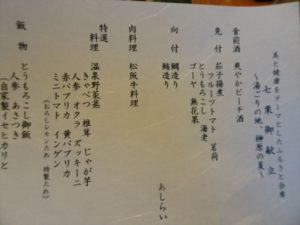 美と健康をテーマとしたふるさと会席
七栗御献立
～湯ごりの地、榊原の夏～
食前酒　爽やかピーチ酒
先付　茄子揚煮
フルーツトマト　茗荷
とうもろこし　海老
ゴーヤ　無花果
向付　鯛造り
鮪造り
あしらい
肉料理　松阪牛料理
特選料理　温泉野菜蒸し
きゃべつ　椎茸　じゃが芋
人参　オクラ　ズッキーニ
赤パプリカ　黄パプリカ
ミニトマト　インゲン
（おろしレモンたれ　特製たれ）
飯物　とうもろこし御飯
人参　あさつき
（自家製イセヒカリと